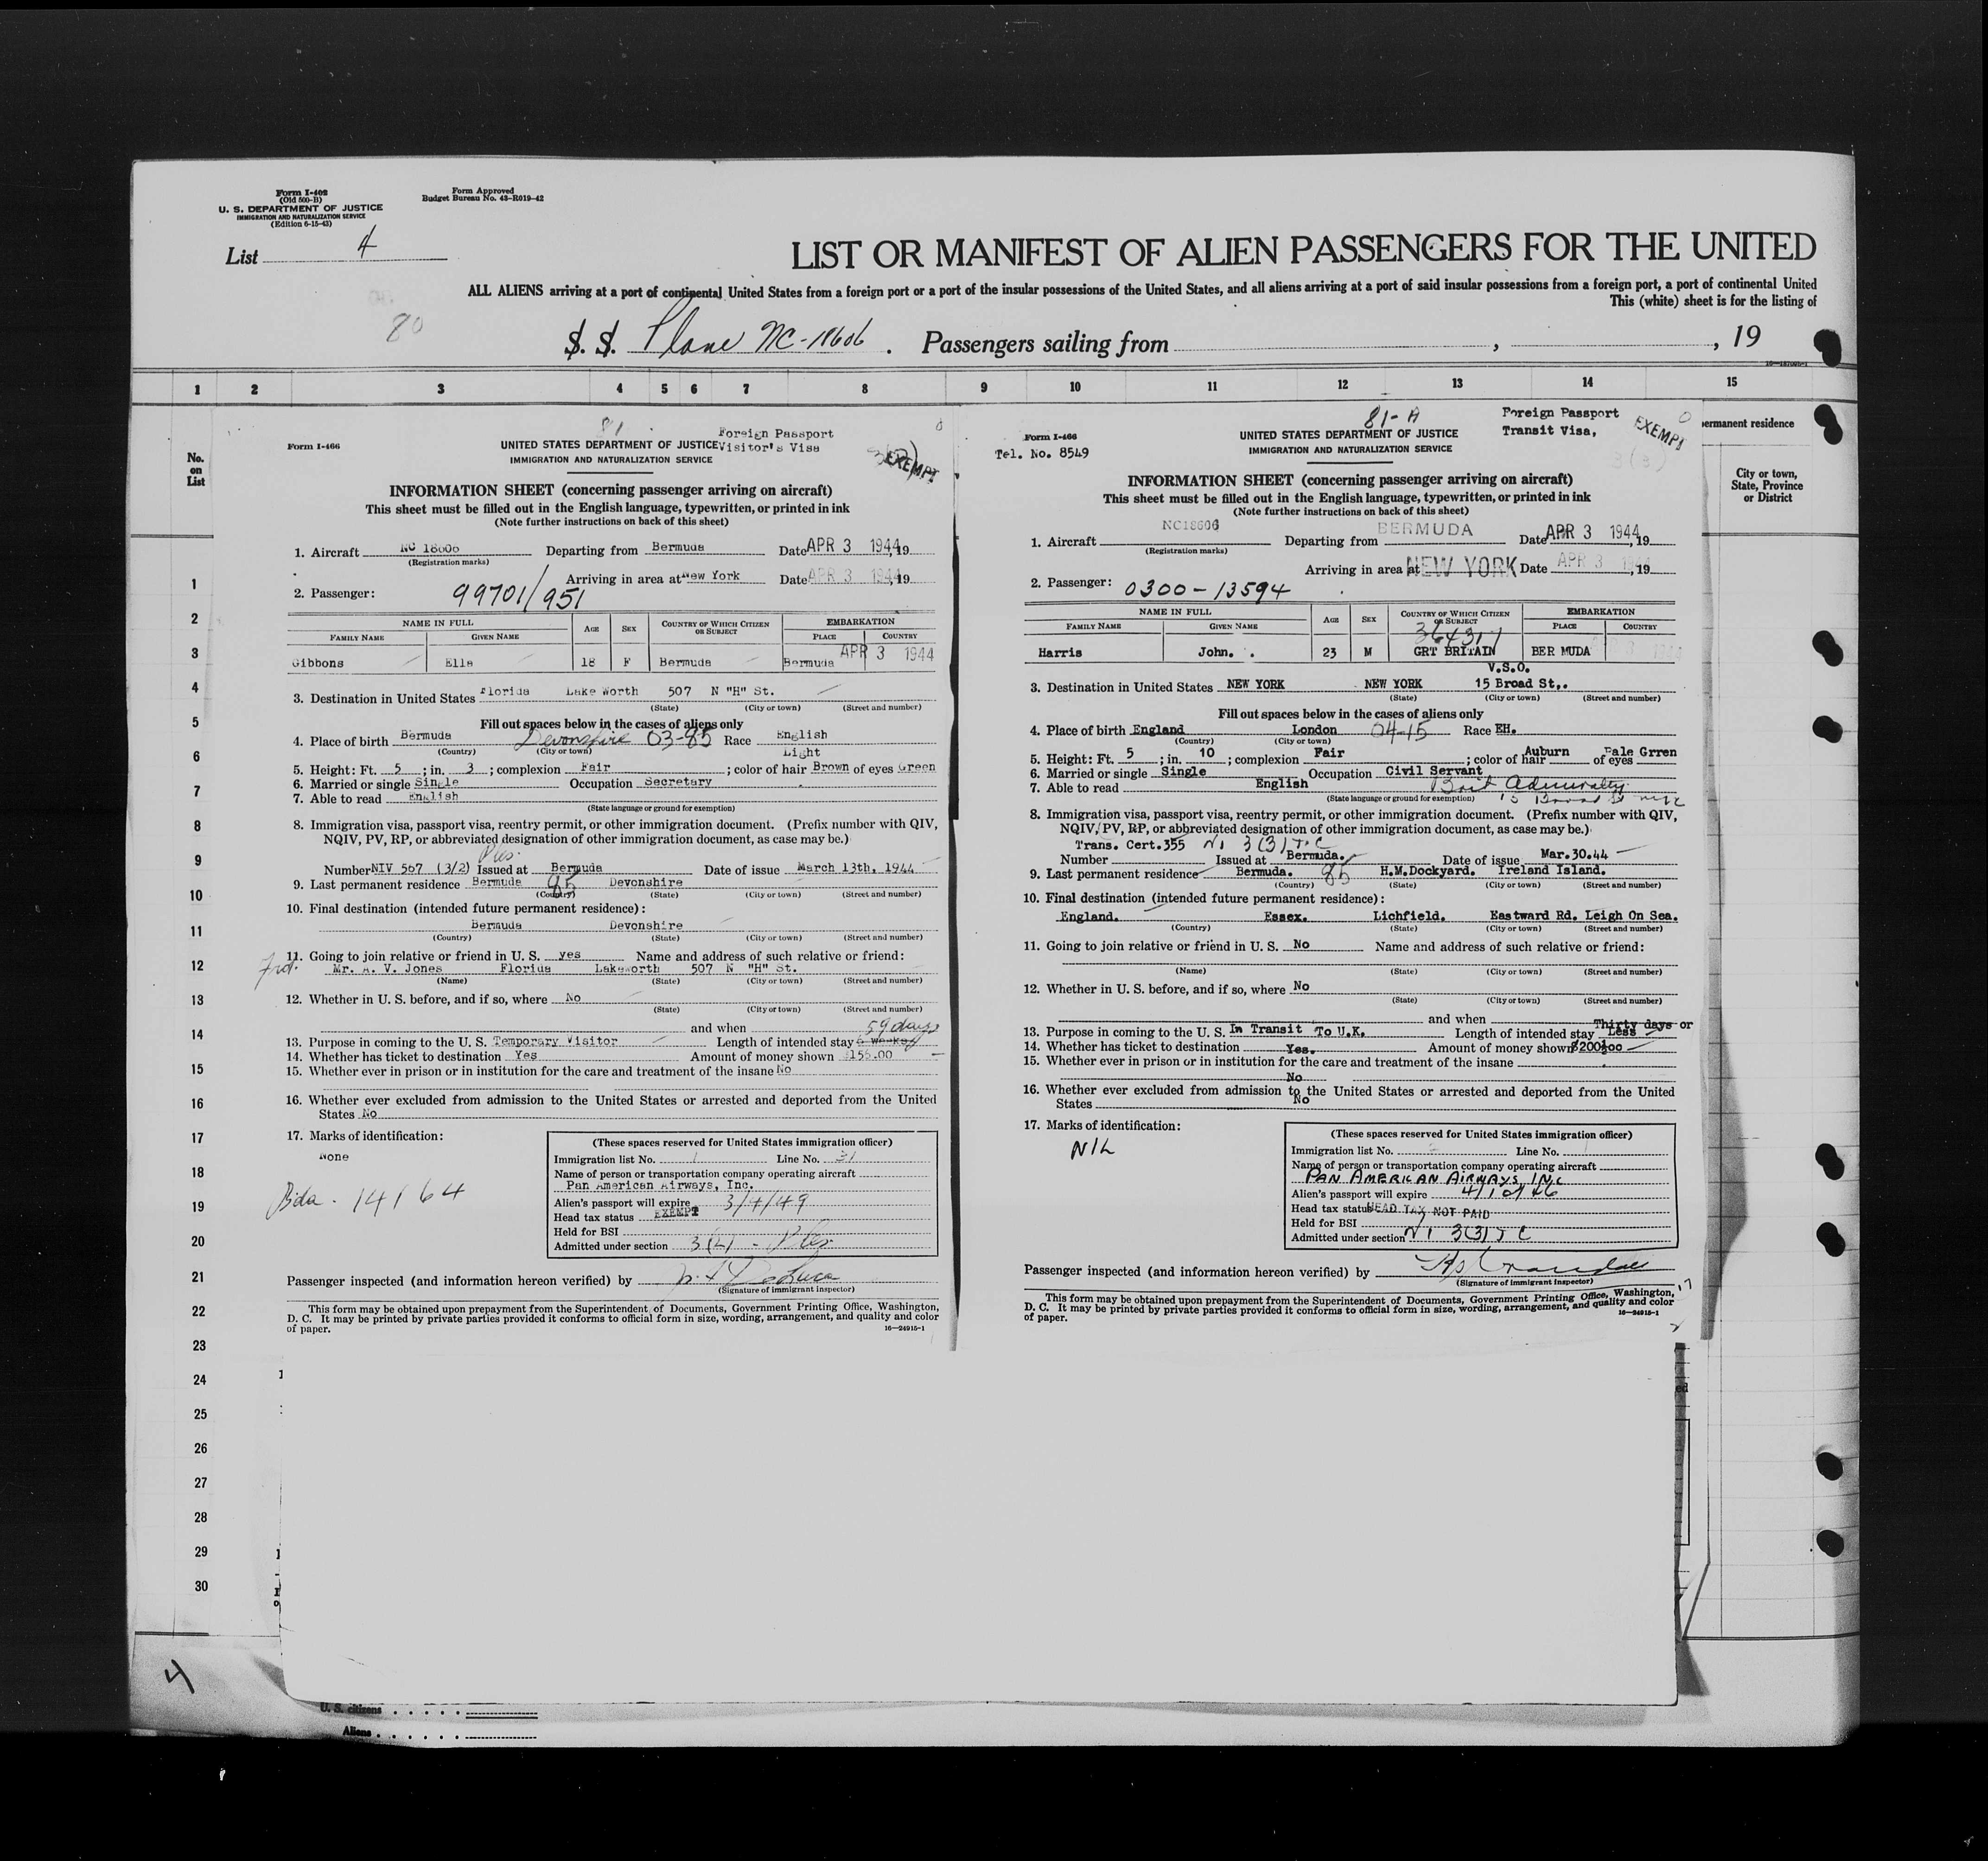 Form I-402
(Old 500-B)
U. S. DEPARTMENT OF JUSTICE
IMMIGRATION AND NATURALIZATION SERVICE
(Edition 6-15-43)
Form Approved
Budget Bureau No. 43-R019-42
List 4
LIST OR MANIFEST OF ALIEN PASSENGERS FOR THE UNITED
ALL ALIENS arriving at a port of continental United States from a foreign port or a port of the insular possessions of the United States, and all aliens arriving at a port of said insular possessions from a foreign port, a port of continental United
This (white) sheet is for the listing of
80
S. S. Plane NC-18606 . Passengers sailing from , , 19
1 2 3 4 5 6 7 8 9 10 11 12 13 14 15
No. on List
1
2
3
4
5
6
7
8
9
10
11
12
13
14
15
16
17
18
19
20
21
22
23
24
25
26
27
28
29
30
81
Foreign Passport
Visitor's Visa
EXEMPT
Form I-466
UNITED STATES DEPARTMENT OF JUSTICE
IMMIGRATION AND NATURALIZATION SERVICE
INFORMATION SHEET (concerning passenger arriving on aircraft)
This sheet must be filled out in the English language, typewritten, or printed in ink
(Note further instructions on back of this sheet)
1. Aircraft NC 18606 Departing from Bermuda Date APR 3 1944, 19
(Registration marks)
Arriving in area at New York Date APR 3 1944, 19
2. Passenger: 99701/951
NAME IN FULL AGE SEX COUNTRY OF WHICH CITIZEN OR SUBJECT EMBARKATION
FAMILY NAME GIVEN NAME PLACE COUNTRY
APR 3 1944
Gibbons Ella 18 F Bermuda Bermuda
3. Destination in United States Florida Lake Worth 507 N "H" St.
(State) (City or town) (Street and number)
Fill out spaces below in the cases of aliens only
4. Place of birth Bermuda Devonshire 03-85 Race English
(Country) (City or town)
Light
5. Height: Ft. 5 ; in. 3 ; complexion Fair ; color of hair Brown of eyes Green
6. Married or single Single Occupation Secretary
7. Able to read English
(State language or ground for exemption)
8. Immigration visa, passport visa, reentry permit, or other immigration document. (Prefix number with QIV,
NQIV, PV, RP, or abbreviated designation of other immigration document, as case may be.)
Number NIV 567 (3/2) Issued at Bermuda Date of issue March 13th, 1944
9. Last permanent residence Bermuda 85 Devonshire
(Country) (State) (City or town) (Street and number)
10. Final destination (intended future permanent residence):
Bermuda Devonshire
(Country) (State) (City or town) (Street and number)
11. Going to join relative or friend in U. S. yes Name and address of such relative or friend:
Mr. A. V. Jones Florida Lakeworth 507 N "H" St.
(Name) (State) (City or town) (Street and number)
12. Whether in U. S. before, and if so, where No
(State) (City or town) (Street and number)
and when 59 days
13. Purpose in coming to the U. S. Temporary Visitor Length of intended stay 6 weeks
14. Whether has ticket to destination Yes Amount of money shown $155.00
15. Whether ever in prison or in institution for the care and treatment of the insane No
16. Whether ever excluded from admission to the United States or arrested and deported from the United
States No
17. Marks of identification:
None
Bda. 14164
(These spaces reserved for United States immigration officer)
Immigration list No. 1 Line No. 31
Name of person or transportation company operating aircraft
Pan American Airways, Inc.
Alien's passport will expire 3/4/49
Head tax status EXEMPT
Held for BSI
Admitted under section 3(2)
Passenger inspected (and information hereon verified) by
(Signature of immigrant inspector)
This form may be obtained upon prepayment from the Superintendent of Documents, Government Printing Office, Washington,
D. C. It may be printed by private parties provided it conforms to official form in size, wording, arrangement, and quality and color
of paper.
16—24915-1
81-A
Foreign Passport
Transit Visa,
EXEMPT
3(3)
Form I-466
Tel. No. 8549
UNITED STATES DEPARTMENT OF JUSTICE
IMMIGRATION AND NATURALIZATION SERVICE
INFORMATION SHEET (concerning passenger arriving on aircraft)
This sheet must be filled out in the English language, typewritten, or printed in ink
(Note further instructions on back of this sheet)
1. Aircraft NC18606 Departing from BERMUDA Date APR 3 1944, 19
(Registration marks)
Arriving in area at NEW YORK Date APR 3 1944, 19
2. Passenger: 0300-13594
NAME IN FULL AGE SEX COUNTRY OF WHICH CITIZEN OR SUBJECT EMBARKATION
FAMILY NAME GIVEN NAME PLACE COUNTRY
Harris John. 23 M GRT BRITAIN BER MUDA
V.S.O.
3. Destination in United States NEW YORK NEW YORK 15 Broad St,.
(State) (City or town) (Street and number)
Fill out spaces below in the cases of aliens only
4. Place of birth England London 04-15 Race EH.
(Country) (City or town)
5. Height: Ft. 5 ; in. 10 ; complexion Fair ; color of hair Auburn of eyes Pale Grren
6. Married or single Single Occupation Civil Servant
7. Able to read English Brit Admiralty
(State language or ground for exemption) 15 Broad St NYC
8. Immigration visa, passport visa, reentry permit, or other immigration document. (Prefix number with QIV,
NQIV, PV, RP, or abbreviated designation of other immigration document, as case may be.)
Trans. Cert.355 NI 3(3) T.C
Number Issued at Bermuda. Date of issue Mar.30.44
9. Last permanent residence Bermuda. 85 H.M.Dockyard. Ireland Island.
(Country) (State) (City or town) (Street and number)
10. Final destination (intended future permanent residence):
England. Essex. Lichfield. Eastward Rd. Leigh On Sea.
(Country) (State) (City or town) (Street and number)
11. Going to join relative or friend in U. S. No Name and address of such relative or friend:
(Name) (State) (City or town) (Street and number)
12. Whether in U. S. before, and if so, where No
(State) (City or town) (Street and number)
and when Thirty days or
13. Purpose in coming to the U. S. In Transit To U.K. Length of intended stay Less
14. Whether has ticket to destination Yes. Amount of money shown $200.00
15. Whether ever in prison or in institution for the care and treatment of the insane
No
16. Whether ever excluded from admission to the United States or arrested and deported from the United
States No
17. Marks of identification:
NIL
(These spaces reserved for United States immigration officer)
Immigration list No. Line No. 1
Name of person or transportation company operating aircraft
PAN AMERICAN AIRWAYS INC
Alien's passport will expire 4/10/46
Head tax status HEAD TAX NOT PAID
Held for BSI
Admitted under section NI 3(3) T C
Passenger inspected (and information hereon verified) by
(Signature of immigrant inspector)
This form may be obtained upon prepayment from the Superintendent of Documents, Government Printing Office, Washington,
D. C. It may be printed by private parties provided it conforms to official form in size, wording, arrangement, and quality and color
of paper.
16—24915-1
ermanent residence
City or town,
State, Province
or District
4
U. S. citizens
Aliens